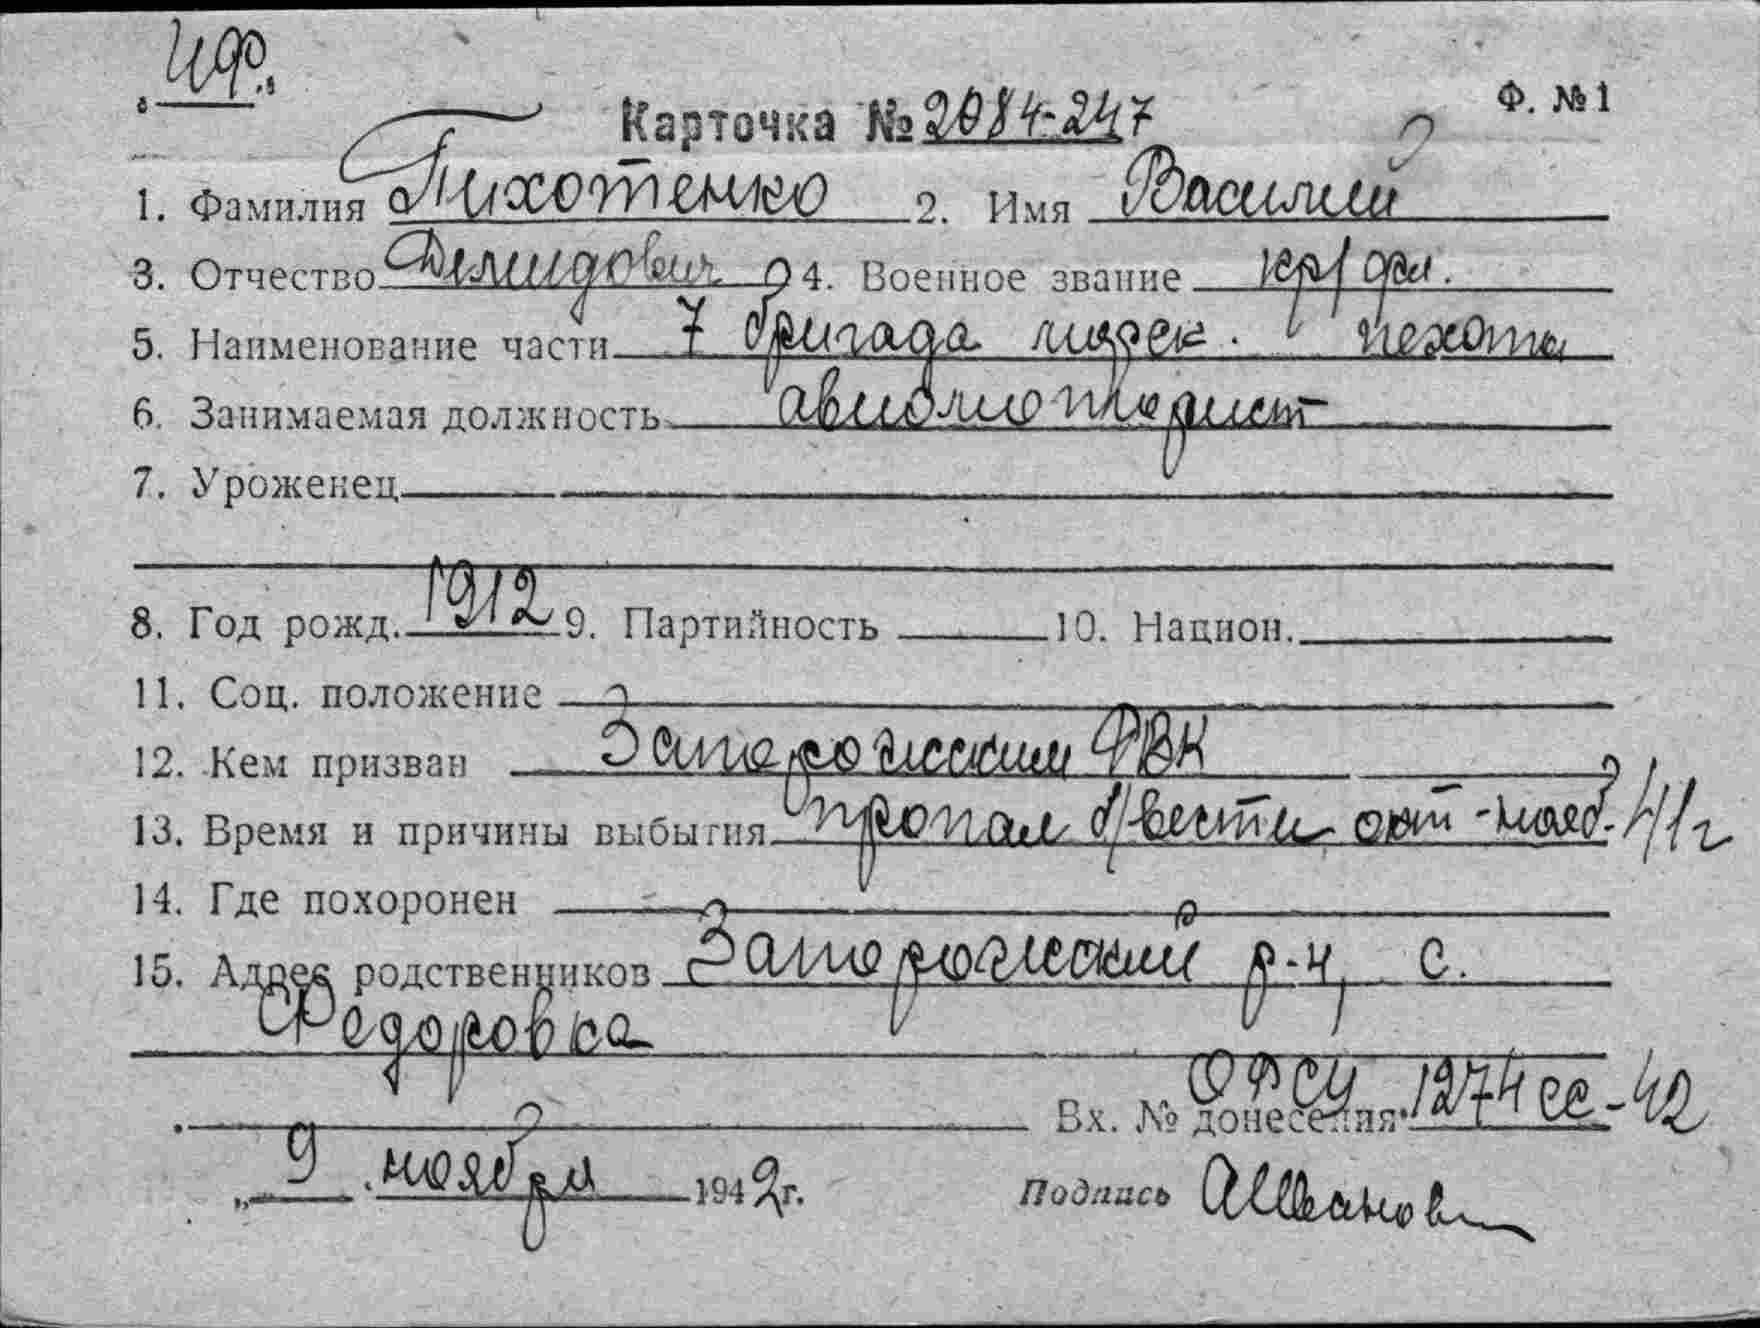 ЧФ.
Ф. №1
Карточка № 2084-247
1. Фамилия Тихотенко 2. Имя Василий
3. Отчество Демидович 4. Военное звание кр/фл.
5. Наименование части 7 бригада морск. пехоты
6. Занимаемая должность авиамоторист
7. Уроженец
8. Год рожд. 1912 9. Партийность 10. Национ.
11. Соц. положение
12. Кем призван Запорожским РВК
13. Время и причины выбытия пропал б/вести окт-нояб. 41г
14. Где похоронен
15. Адрес родственников Запорожский р-н, с.
Федоровка
Вх. № донесения ОФСУ 1274сс-42
„ 9 . ноября 1942г. Подпись